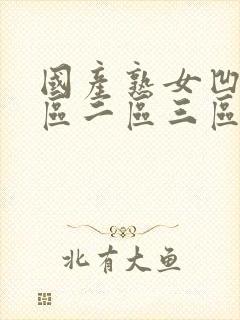 國產熟女凹
區二區三區
北有大鱼